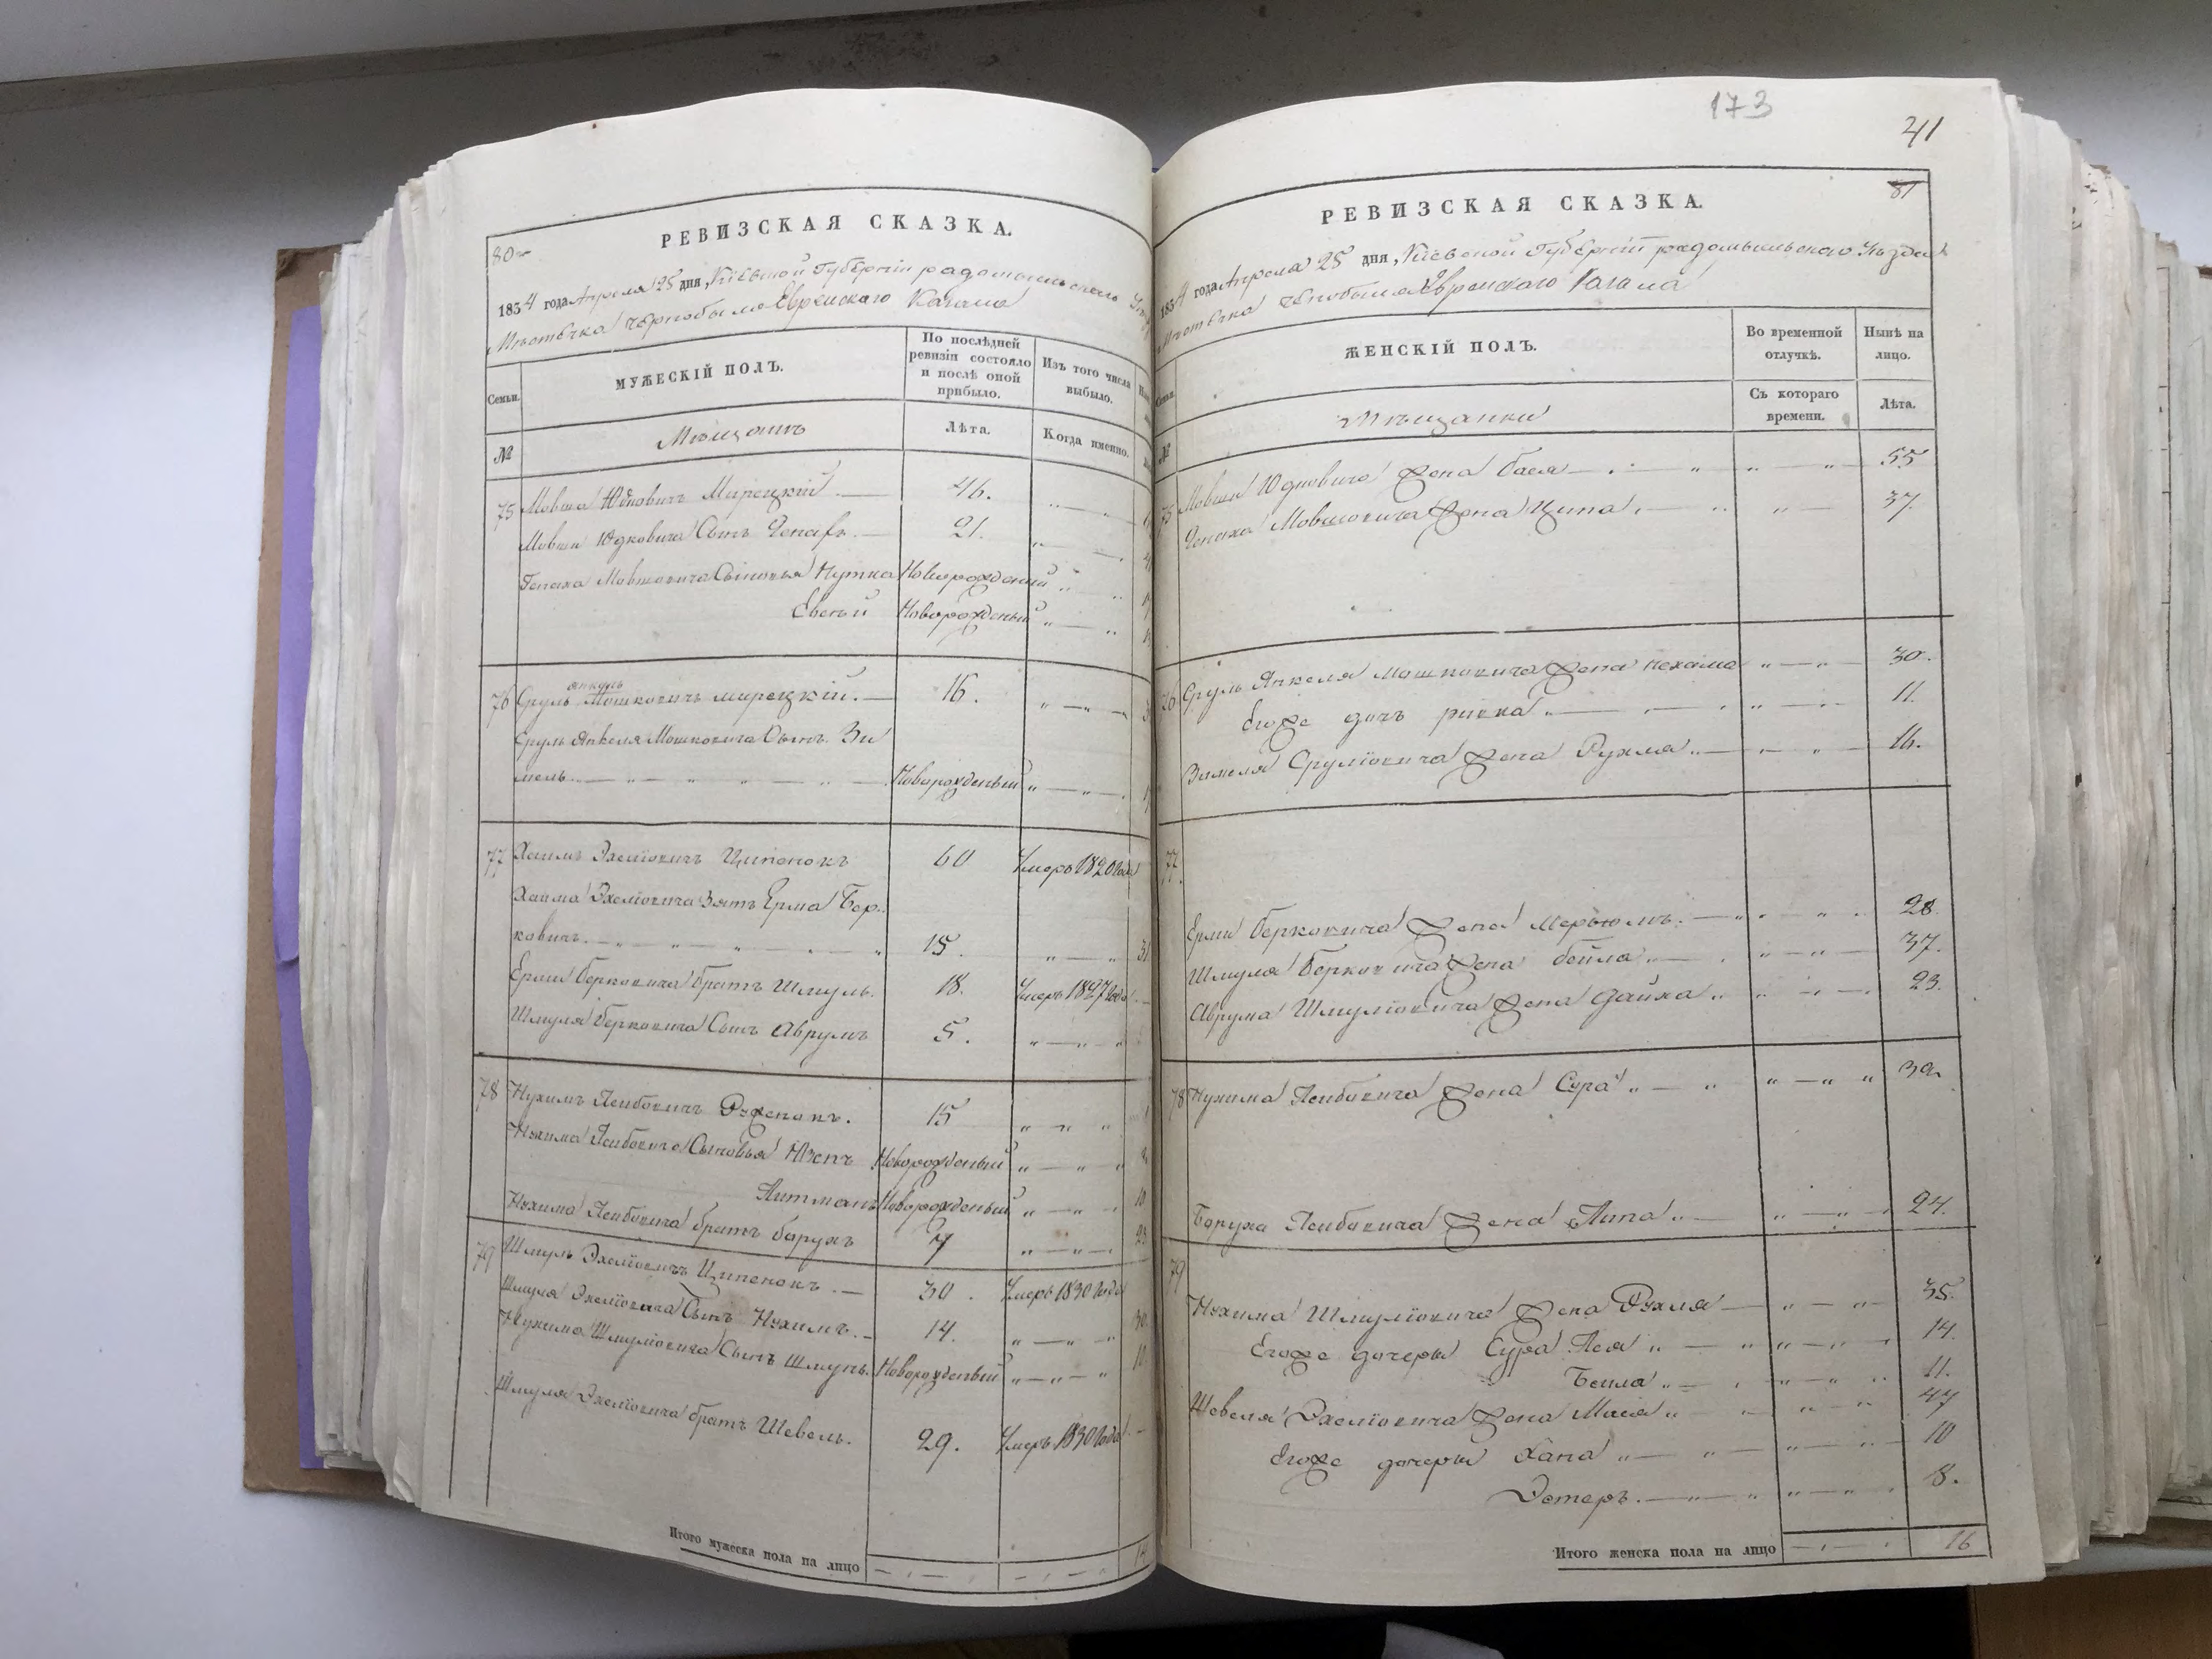 80
РЕВИЗСКАЯ СКАЗКА.
1834 года Апреля 25 дня, Кіевской Губерніи радомысльскаго
Мѣстечка Чернобыля Еврейскаго Кагала
Семьи.
МУЖЕСКІЙ ПОЛЪ.
По послѣдней ревизіи состояло и послѣ оной прибыло.
Изъ того числа выбыло.
№
Мѣщанъ
Лѣта.
Когда именно.
75 Мовша Юдковичъ Марецкій 46.
Мовши Юдковича Сынъ Генахъ 21.
Генаха Мовшовича Сыновья Нутка Новорожденый
Евсѣй Новорожденый
76 Сруль Янкель Мошковичъ марецкій. 16.
Сруль Янкеля Мошковича Сынъ Зи
мель Новорожденый
77 Хаимъ Эхеліовичъ Ципенокъ 60 Умеръ 1820 года
Хаима Эхеліовича Зять Ерма Бер
ковичъ 15.
Ерми Берковича братъ Шмуль. 18. Умеръ 1827 года
Шмуля Берковича Сынъ Аврумъ 5.
78 Нухимъ Леибовичъ Руженокъ. 15
Нухима Леибовича Сыновья Новорожденый
Новорожденый
Нухима Леибовича братъ барухъ 7
79 Шмуль Эхеліовичъ Ципенокъ. 30. Умеръ 1830 года
Шмуля Эхеліовича Сынъ Нухимъ. 14.
Нухима Шмуліовича Сынъ Новорожденый
Шмуля Эхеліовича братъ Шевель. 29. Умеръ 1830 года
Итого мужеска пола на лицо 14
173
41
81
РЕВИЗСКАЯ СКАЗКА.
1834 года Апреля 25 дня, Кіевской Губерніи радомысльскаго Уѣзда
Мѣстечка Чернобыля Еврейскаго Кагала
ЖЕНСКІЙ ПОЛЪ.
Во временной отлучкѣ.
Нынѣ на лицо.
№
Мѣщанки
Съ котораго времени.
Лѣта.
75 Мовши Юдковича Жена Бася 55
Генаха Мовшовича Жена Ципа 37.
76 Сруль Янкеля Мошковича Жена Нехама 30.
Егоже дочь ривка 11.
Зимеля Сруліовича Жена Рухля 16.
77
Ерми Берковича Жена Мерьюмъ 28.
Шмуля Берковича Жена бейла 37.
Аврума Шмуліовича Жена 23.
78 Нухима Леибовича Жена Сура 32
Баруха Леибовича Жена 24.
79
Нухима Шмуліовича Жена Рухля 35.
Егоже дочери Сура Лея 14.
Беила 11.
Шевеля Эхеліовича Жена Мася 47
Егоже дочери Хана 10
Эстеръ. 8.
Итого женска пола на лицо 16